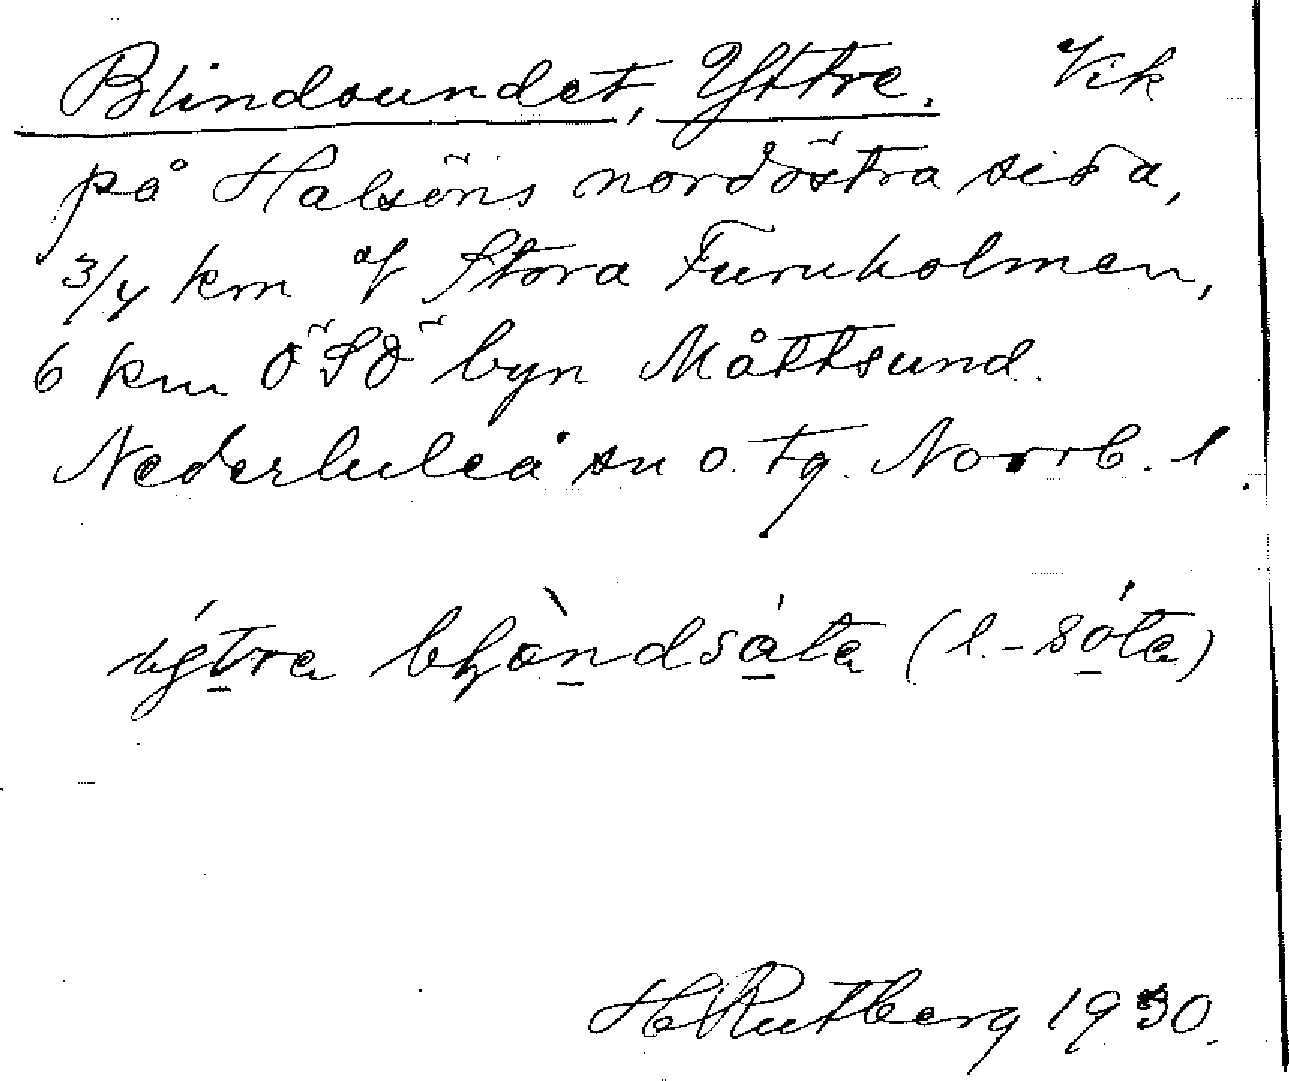 Blindsundet, Yttre. Vik
på Halsöns nordöstra sida,
3/4 km of Stora Furuholmen,
6 km ÖSÖ byn Måttsund.
Nederluleå sn o. tg. Norrb. l.
(l. -sóta)
H Rutberg 1930.